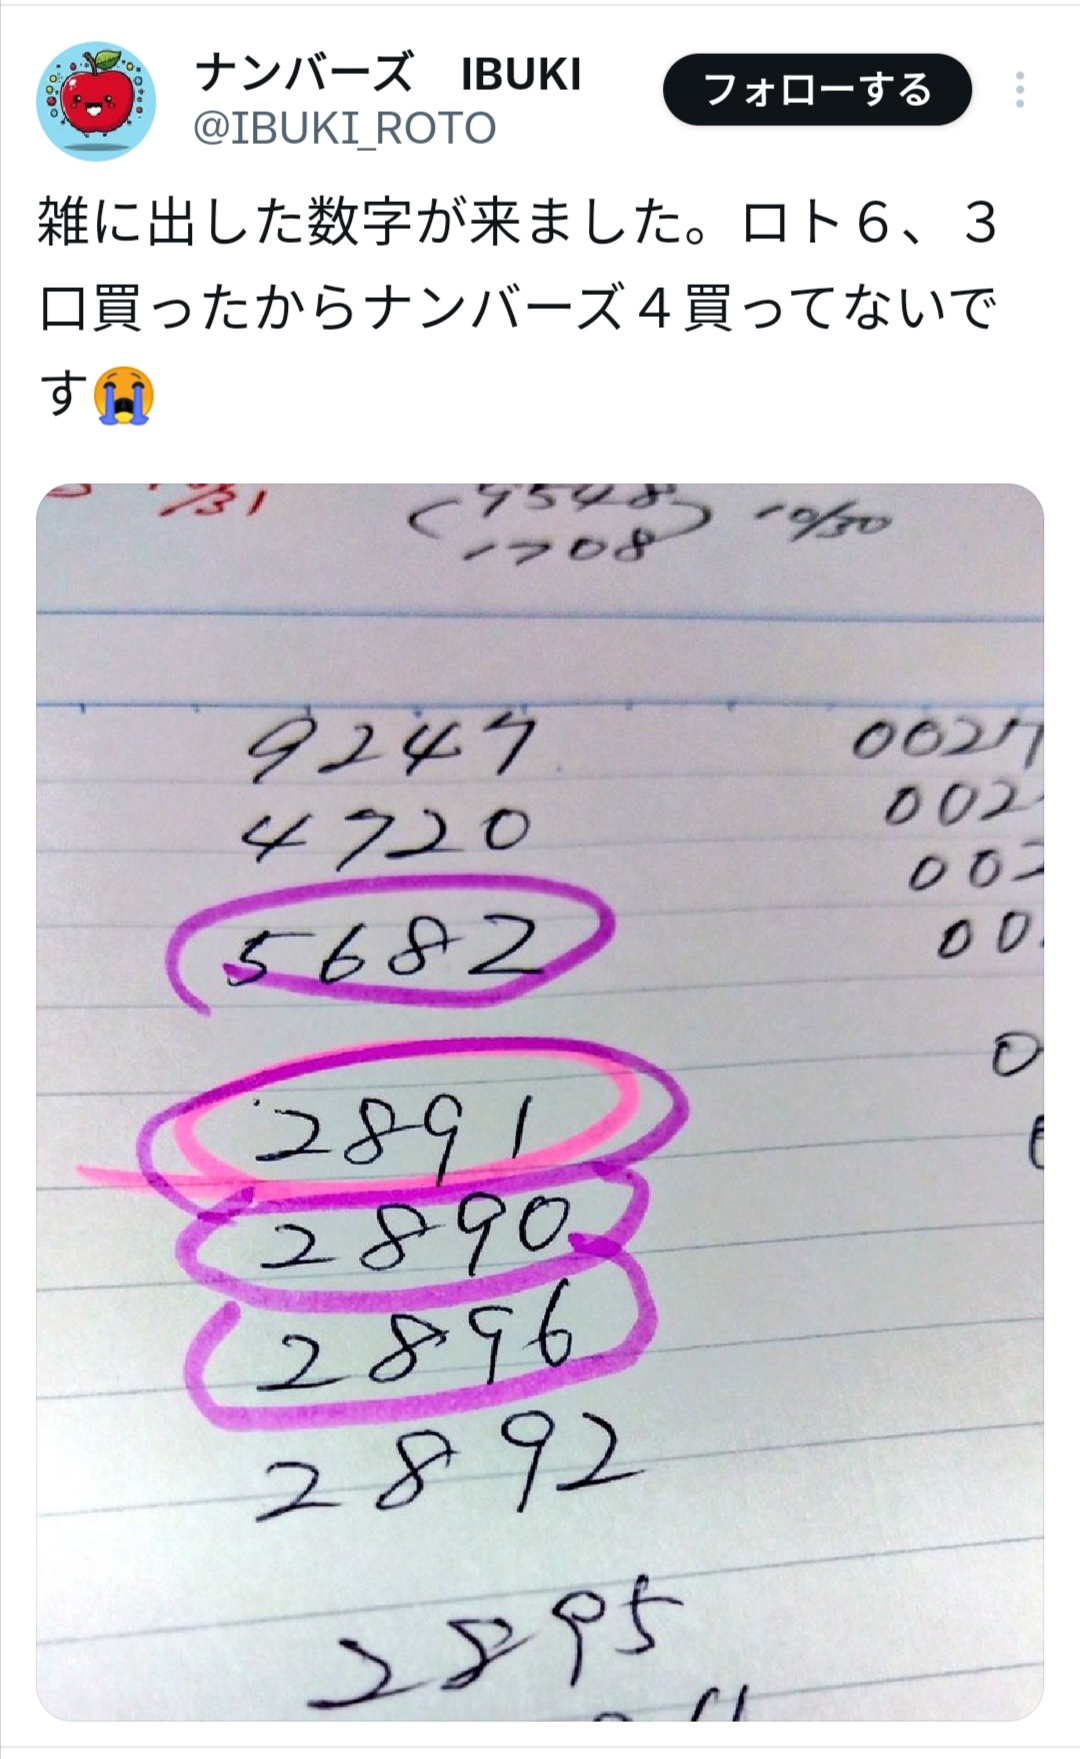 ナンバーズ　IBUKI
フォローする
@IBUKI_ROTO
雑に出した数字が来ました。ロト６、３
口買ったからナンバーズ４買ってないで
す😭
/31
(9548)
1708
10/30
9247
4720
5682
2891
2890
2896
2892
2895
002
002
00
00
0